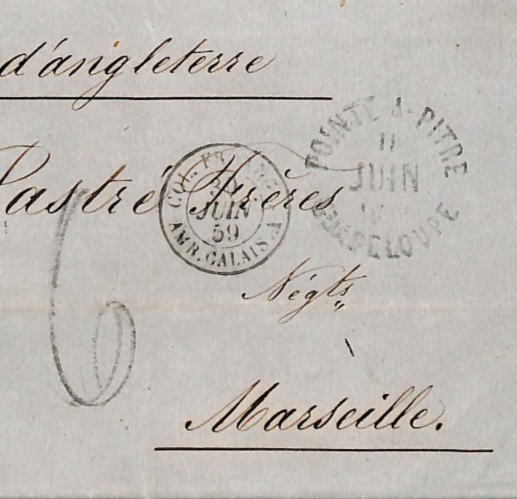 d'angleterre
Pastré Frères
COL. FR.
JUIN
59
AMB. CALAIS. A
POINTE A. PITRE
11
JUIN
GUADELOUPE
Négts
Marseille.
6